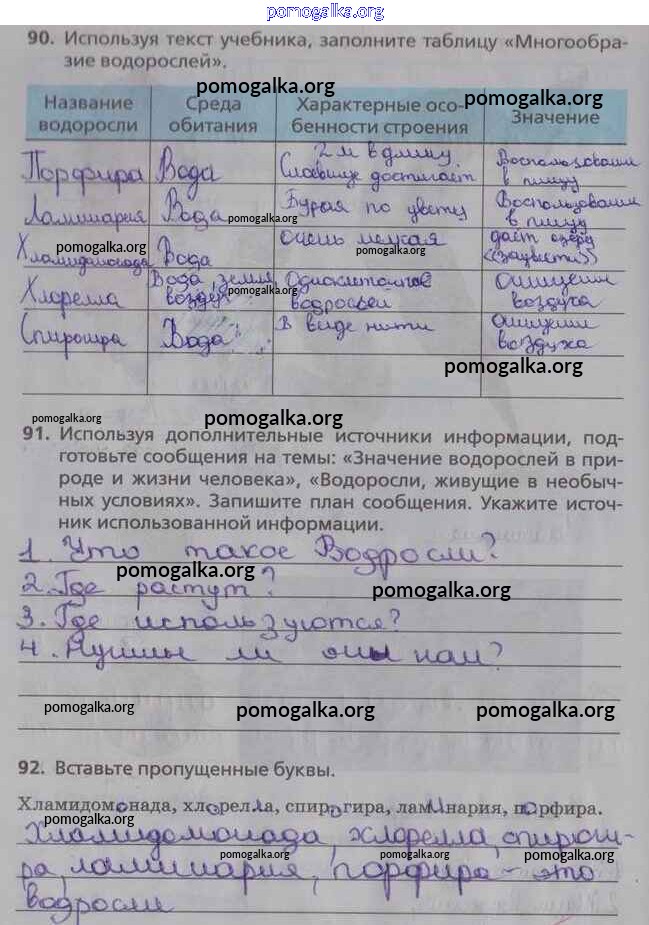 pomogalka.org
90. Используя текст учебника, заполните таблицу «Многообра-
зие водорослей».
pomogalka.org
pomogalka.org
Название водоросли
Среда обитания
Характерные осо-
бенности строения
Значение
Порфира Вода 2 м в длину. Слоевище достигает
в пищу
Ламинария Вода Бурая по цвету
в пищу
pomogalka.org
Хламидомонада Вода очень мелкая даёт озеру
pomogalka.org
pomogalka.org
Хлорелла Вода, земля, воздух
воздуха
pomogalka.org
Вода В виде нити
воздуха
pomogalka.org
pomogalka.org
pomogalka.org
91. Используя дополнительные источники информации, под-
готовьте сообщения на темы: «Значение водорослей в при-
роде и жизни человека», «Водоросли, живущие в необыч-
ных условиях». Запишите план сообщения. Укажите источ-
ник использованной информации.
1. Что такое Водросли?
2. Где растут?
pomogalka.org
pomogalka.org
3. Где используются?
4. Нужны ли они нам?
pomogalka.org
pomogalka.org
pomogalka.org
92. Вставьте пропущенные буквы.
Хламидомонада, хлорелла, спирогира, ламинария, порфира.
pomogalka.org
pomogalka.org
Хламидомонада, хлорелла, спироги-
ра, ламинария, порфира - это
pomogalka.org
pomogalka.org
pomogalka.org
водросли